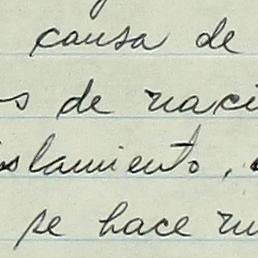 causa de
s de naci
islamiento,
se hace nu